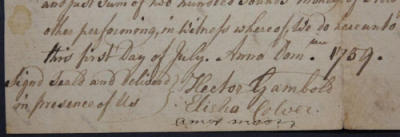 and just Sum of two hundred Pounds money of
other performing, in witness whereof, We do hereunto
this first Day of July. Anno Dom. 1759.
Signd Seald and Deliverd
in presence of Us
Hector Gambold
Elisha Colver.
amos moor